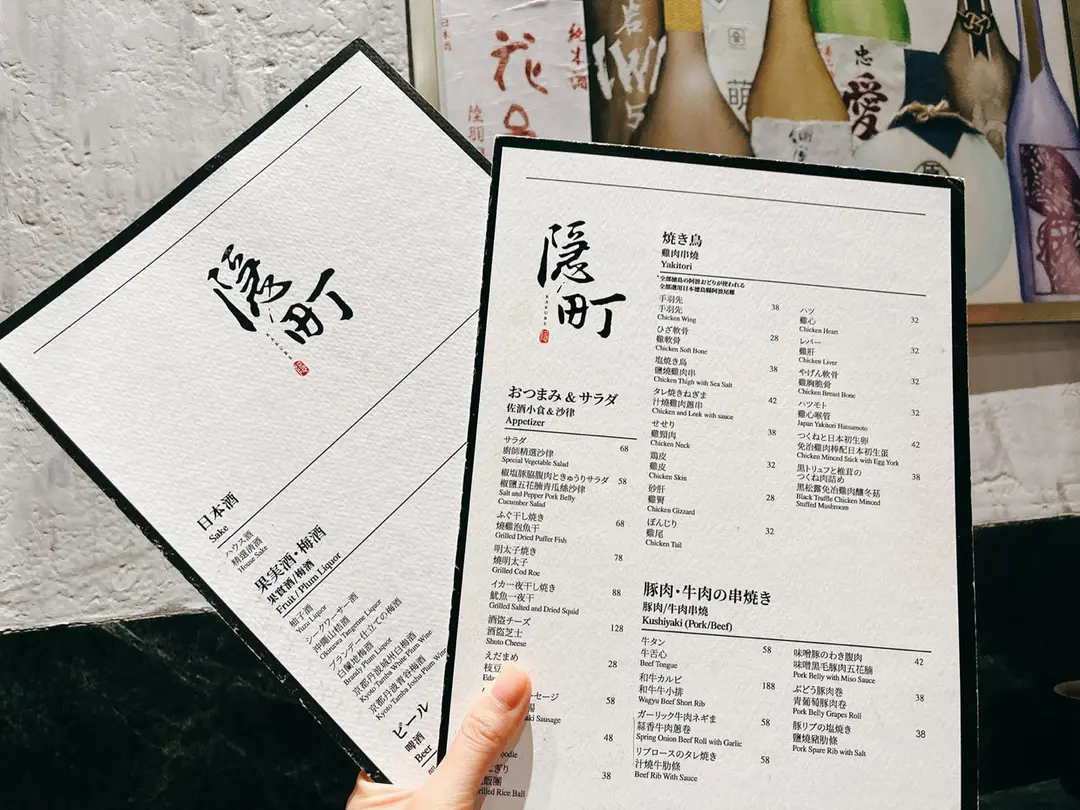 隱町
KAKURE
日本酒
Sake
ハウス酒
精選清酒
House Sake
果実酒・梅酒
果實酒/梅酒
Fruit / Plum Liquor
柚子酒
Yuzu Liquor
シークワーサー酒
沖繩山桔酒
Okinawa Tangerine Liquor
ブランデー仕立ての梅酒
白蘭地梅酒
Brandy Plum Liquor
京都丹波城州白梅酒
Kyoto Tamba White Plum Wine
京都丹波青谷梅酒
Kyoto Tamba Joshu Plum Wine
ビール
啤酒
Beer
隱町
KAKURE
おつまみ & サラダ
佐酒小食 & 沙律
Appetizer
サラダ 68
廚師精選沙律
Special Vegetable Salad
椒塩豚脇腹肉ときゅうりサラダ 58
椒鹽五花腩青瓜絲沙律
Salt and Pepper Pork Belly
Cucumber Salad
ふぐ干し焼き 68
燒雞泡魚干
Grilled Dried Puffer Fish
明太子焼き 78
燒明太子
Grilled Cod Roe
イカ一夜干し焼き 88
魷魚一夜干
Grilled Salted and Dried Squid
酒盗チーズ 128
酒盜芝士
Shuto Cheese
えだまめ 28
枝豆
セージ 58
aki Sausage
48
oodle
ぎり 38
飯團
rilled Rice Ball
焼き鳥
雞肉串燒
Yakitori
*全部徳島の阿波おどりが使われる
全部選用日本德島縣阿波尾雞
手羽先 38
手羽先
Chicken Wing
ひざ軟骨 28
雞軟骨
Chicken Soft Bone
塩焼き鳥 38
鹽燒雞肉串
Chicken Thigh with Sea Salt
タレ焼きねぎま 42
汁燒雞肉蔥串
Chicken and Leek with sauce
せせり 38
雞頸肉
Chicken Neck
鶏皮 32
雞皮
Chicken Skin
砂肝 28
雞腎
Chicken Gizzard
ぼんじり 32
雞尾
Chicken Tail
ハツ 32
雞心
Chicken Heart
レバー 32
雞肝
Chicken Liver
やげん軟骨 32
雞胸脆骨
Chicken Breast Bone
ハツモト 32
雞心喉管
Japan Yakitori Hatsumoto
つくねと日本初生卵 42
免治雞肉棒配日本初生蛋
Chicken Minced Stick with Egg York
黒トリュフと椎茸の 38
つくね肉詰め
黑松露免治雞肉釀冬菇
Black Truffle Chicken Minced
Stuffed Mushroom
豚肉・牛肉の串焼き
豚肉/牛肉串燒
Kushiyaki (Pork/Beef)
牛タン 58
牛舌心
Beef Tongue
和牛カルビ 188
和牛牛小排
Wagyu Beef Short Rib
ガーリック牛肉ネギま 58
蒜香牛肉蔥卷
Spring Onion Beef Roll with Garlic
リブロースのタレ焼き 58
汁燒牛肋條
Beef Rib With Sauce
味噌豚のわき腹肉 42
味噌黑毛豚肉五花腩
Pork Belly with Miso Sauce
ぶどう豚肉巻 38
青葡萄豚肉卷
Pork Belly Grapes Roll
豚リブの塩焼き 38
鹽燒豬肋條
Pork Spare Rib with Salt
純米酒
花
忠
愛
萌